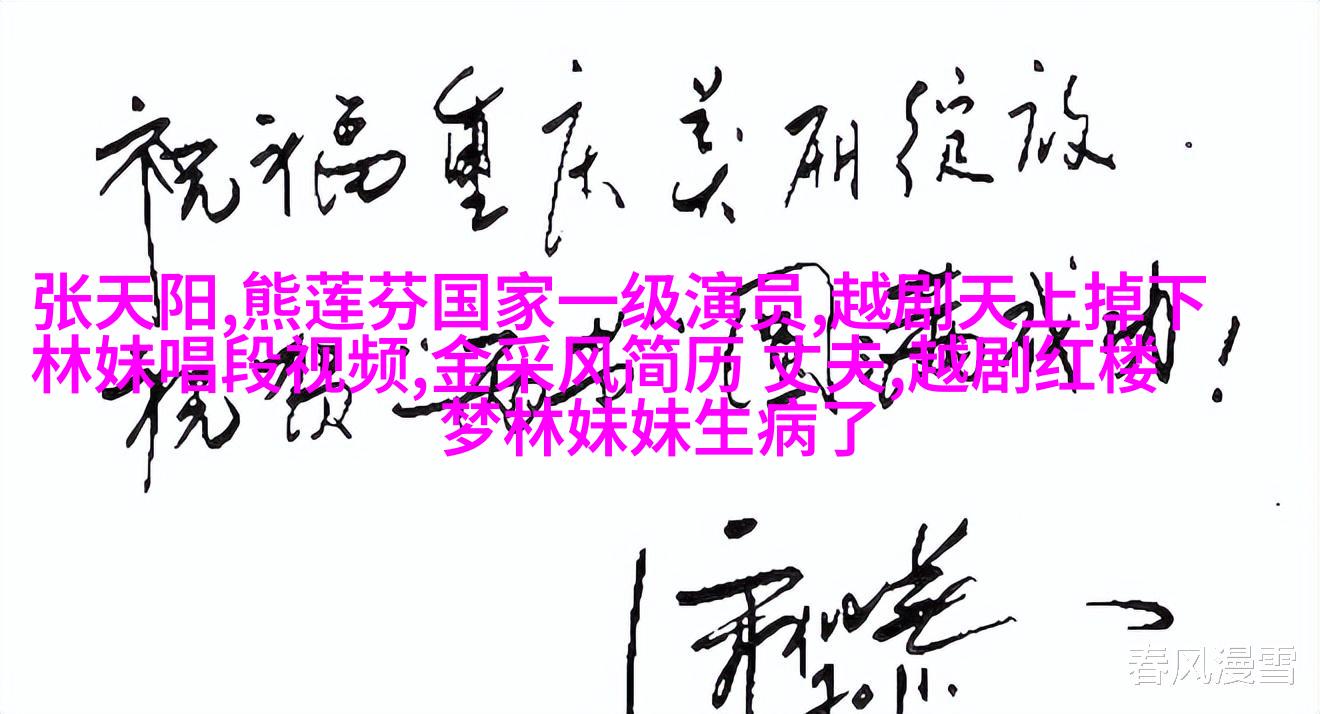 祝福重庆美丽绽放.
张天阳,熊莲芬国家一级演员,越剧天上掉下
林妹唱段视频,金采风简历 丈夫,越剧红楼
梦林妹妹生病了
祝贺
2011.
春风漫雪